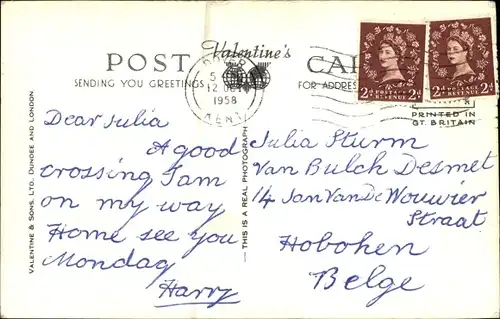 POST Valentine's CA
SENDING YOU GREETINGS FOR ADDRES
5
12 OC
1958
KENT
2d POSTAGE REVENUE 2d
2d POSTAGE REVENUE 2d
PRINTED IN
GT. BRITAIN
Dear Julia
A good
crossing I am
on my way
Home see you
Monday
Harry
VALENTINE & SONS, LTD., DUNDEE AND LONDON
THIS IS A REAL PHOTOGRAPH
Julia Sturm
Van Bulck Desmet
14 Jan Van De Wouwier
Straat
Hoboken
Belge